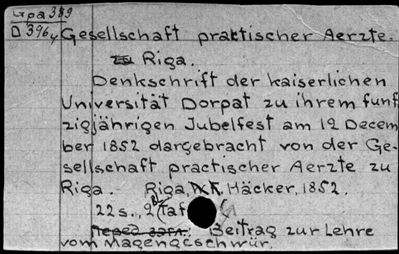 Gpa 389
D 3964 Gesellschaft praktischer Aerzte.
zu Riga.
Denkschrift der kaiserlichen
Universität Dorpat zu ihrem funf
zigjährigen Jubelfest am 12 Decem
ber 1852 dargebracht von der Ge-
sellschaft practischer Aerzte zu
Riga. Riga, Häcker, 1852.
22 s., 2 Taf
Перед загл.: Beitrag zur Lehre
vom Magengeschwür.